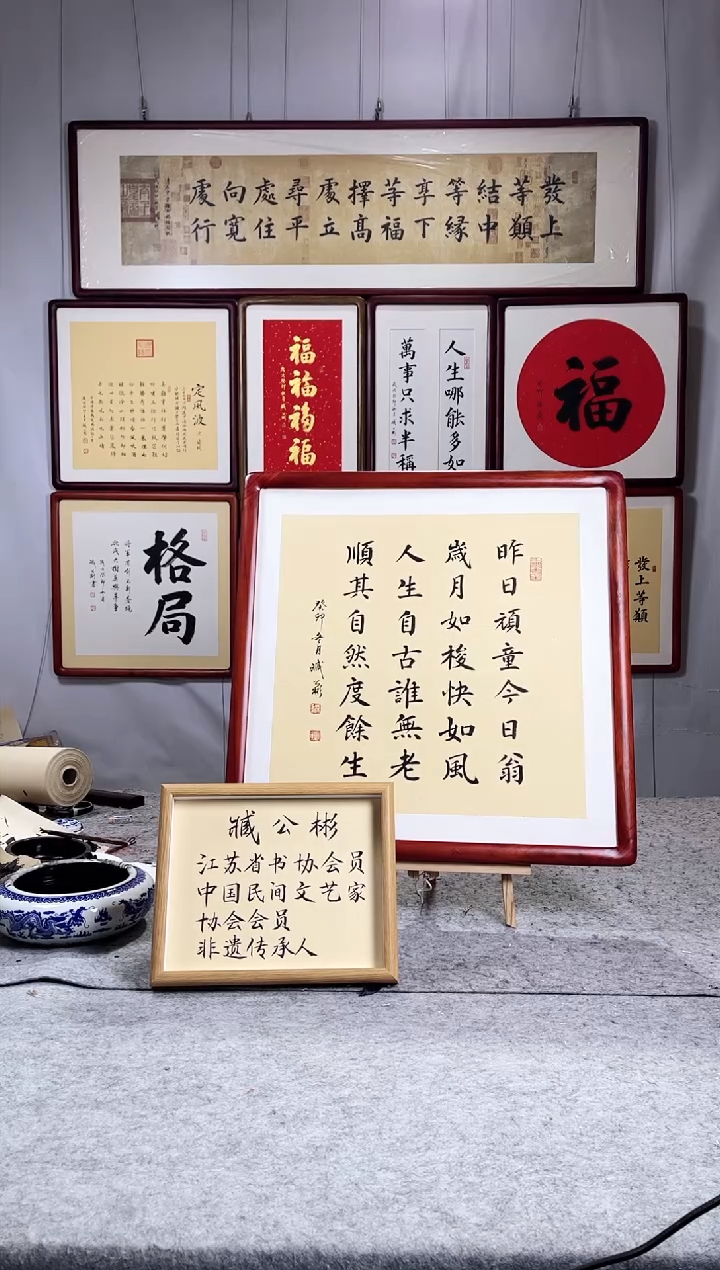 發上
等願
結中
等緣
享下
等福
擇高
處立
尋平
處住
向寬
處行
定風波
福福福福
人生哪能多如
萬事只求半稱
福
格局
發上等願
昨日頑童今日翁
歲月如梭快如風
人生自古誰無老
順其自然度餘生
癸卯
臧公彬
江苏省书协会员
中国民间文艺家
协会会员
非遗传承人